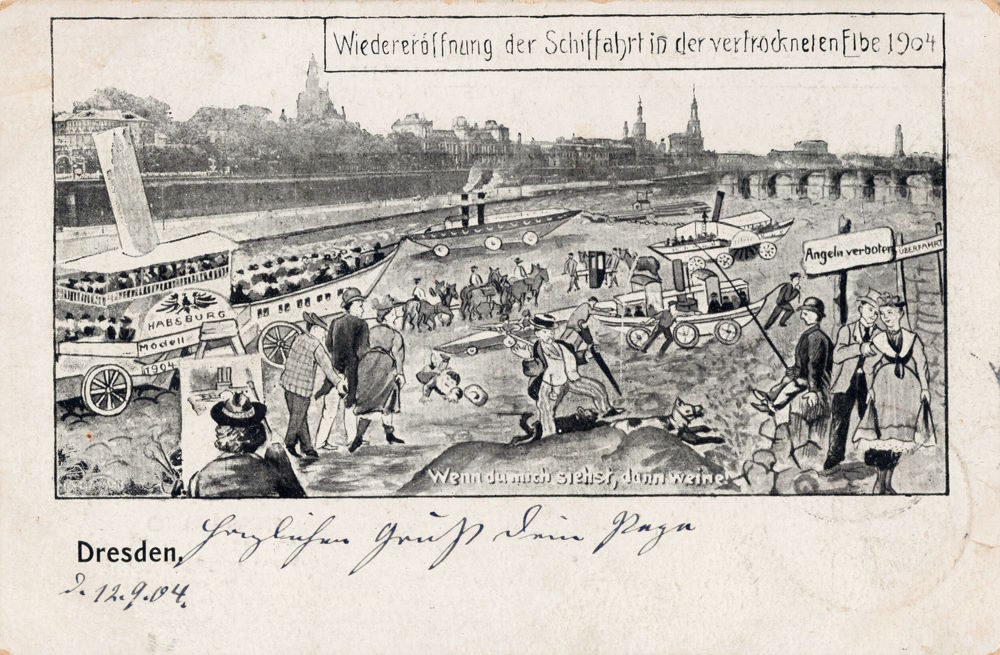 Wiedereröffnung der Schiffahrt in der vertrockneten Elbe 1904
Angeln verboten
ÜBERFAHRT
HABSBURG
Modell
1904
Wenn du mich siehst, dann weine!
Dresden, Herzlichen Gruß Dein Papa
d. 12.9.04.